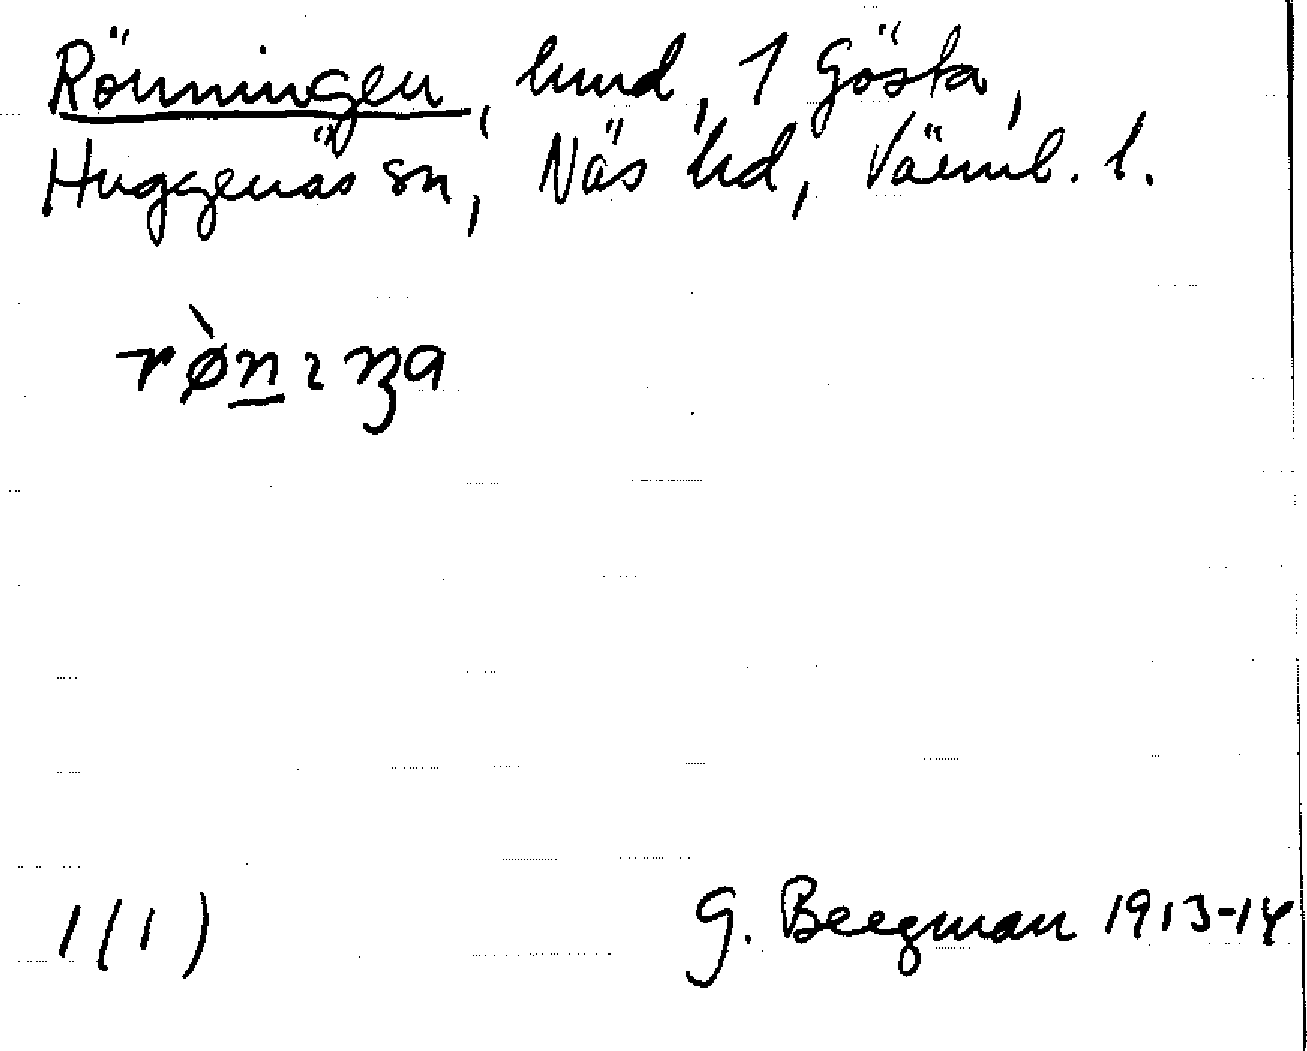 Rönningen, hmd, 1 Gösta,
Huggenäs sn, Näs hd, Värml. l.
1(1)
G. Bergman 1913-14